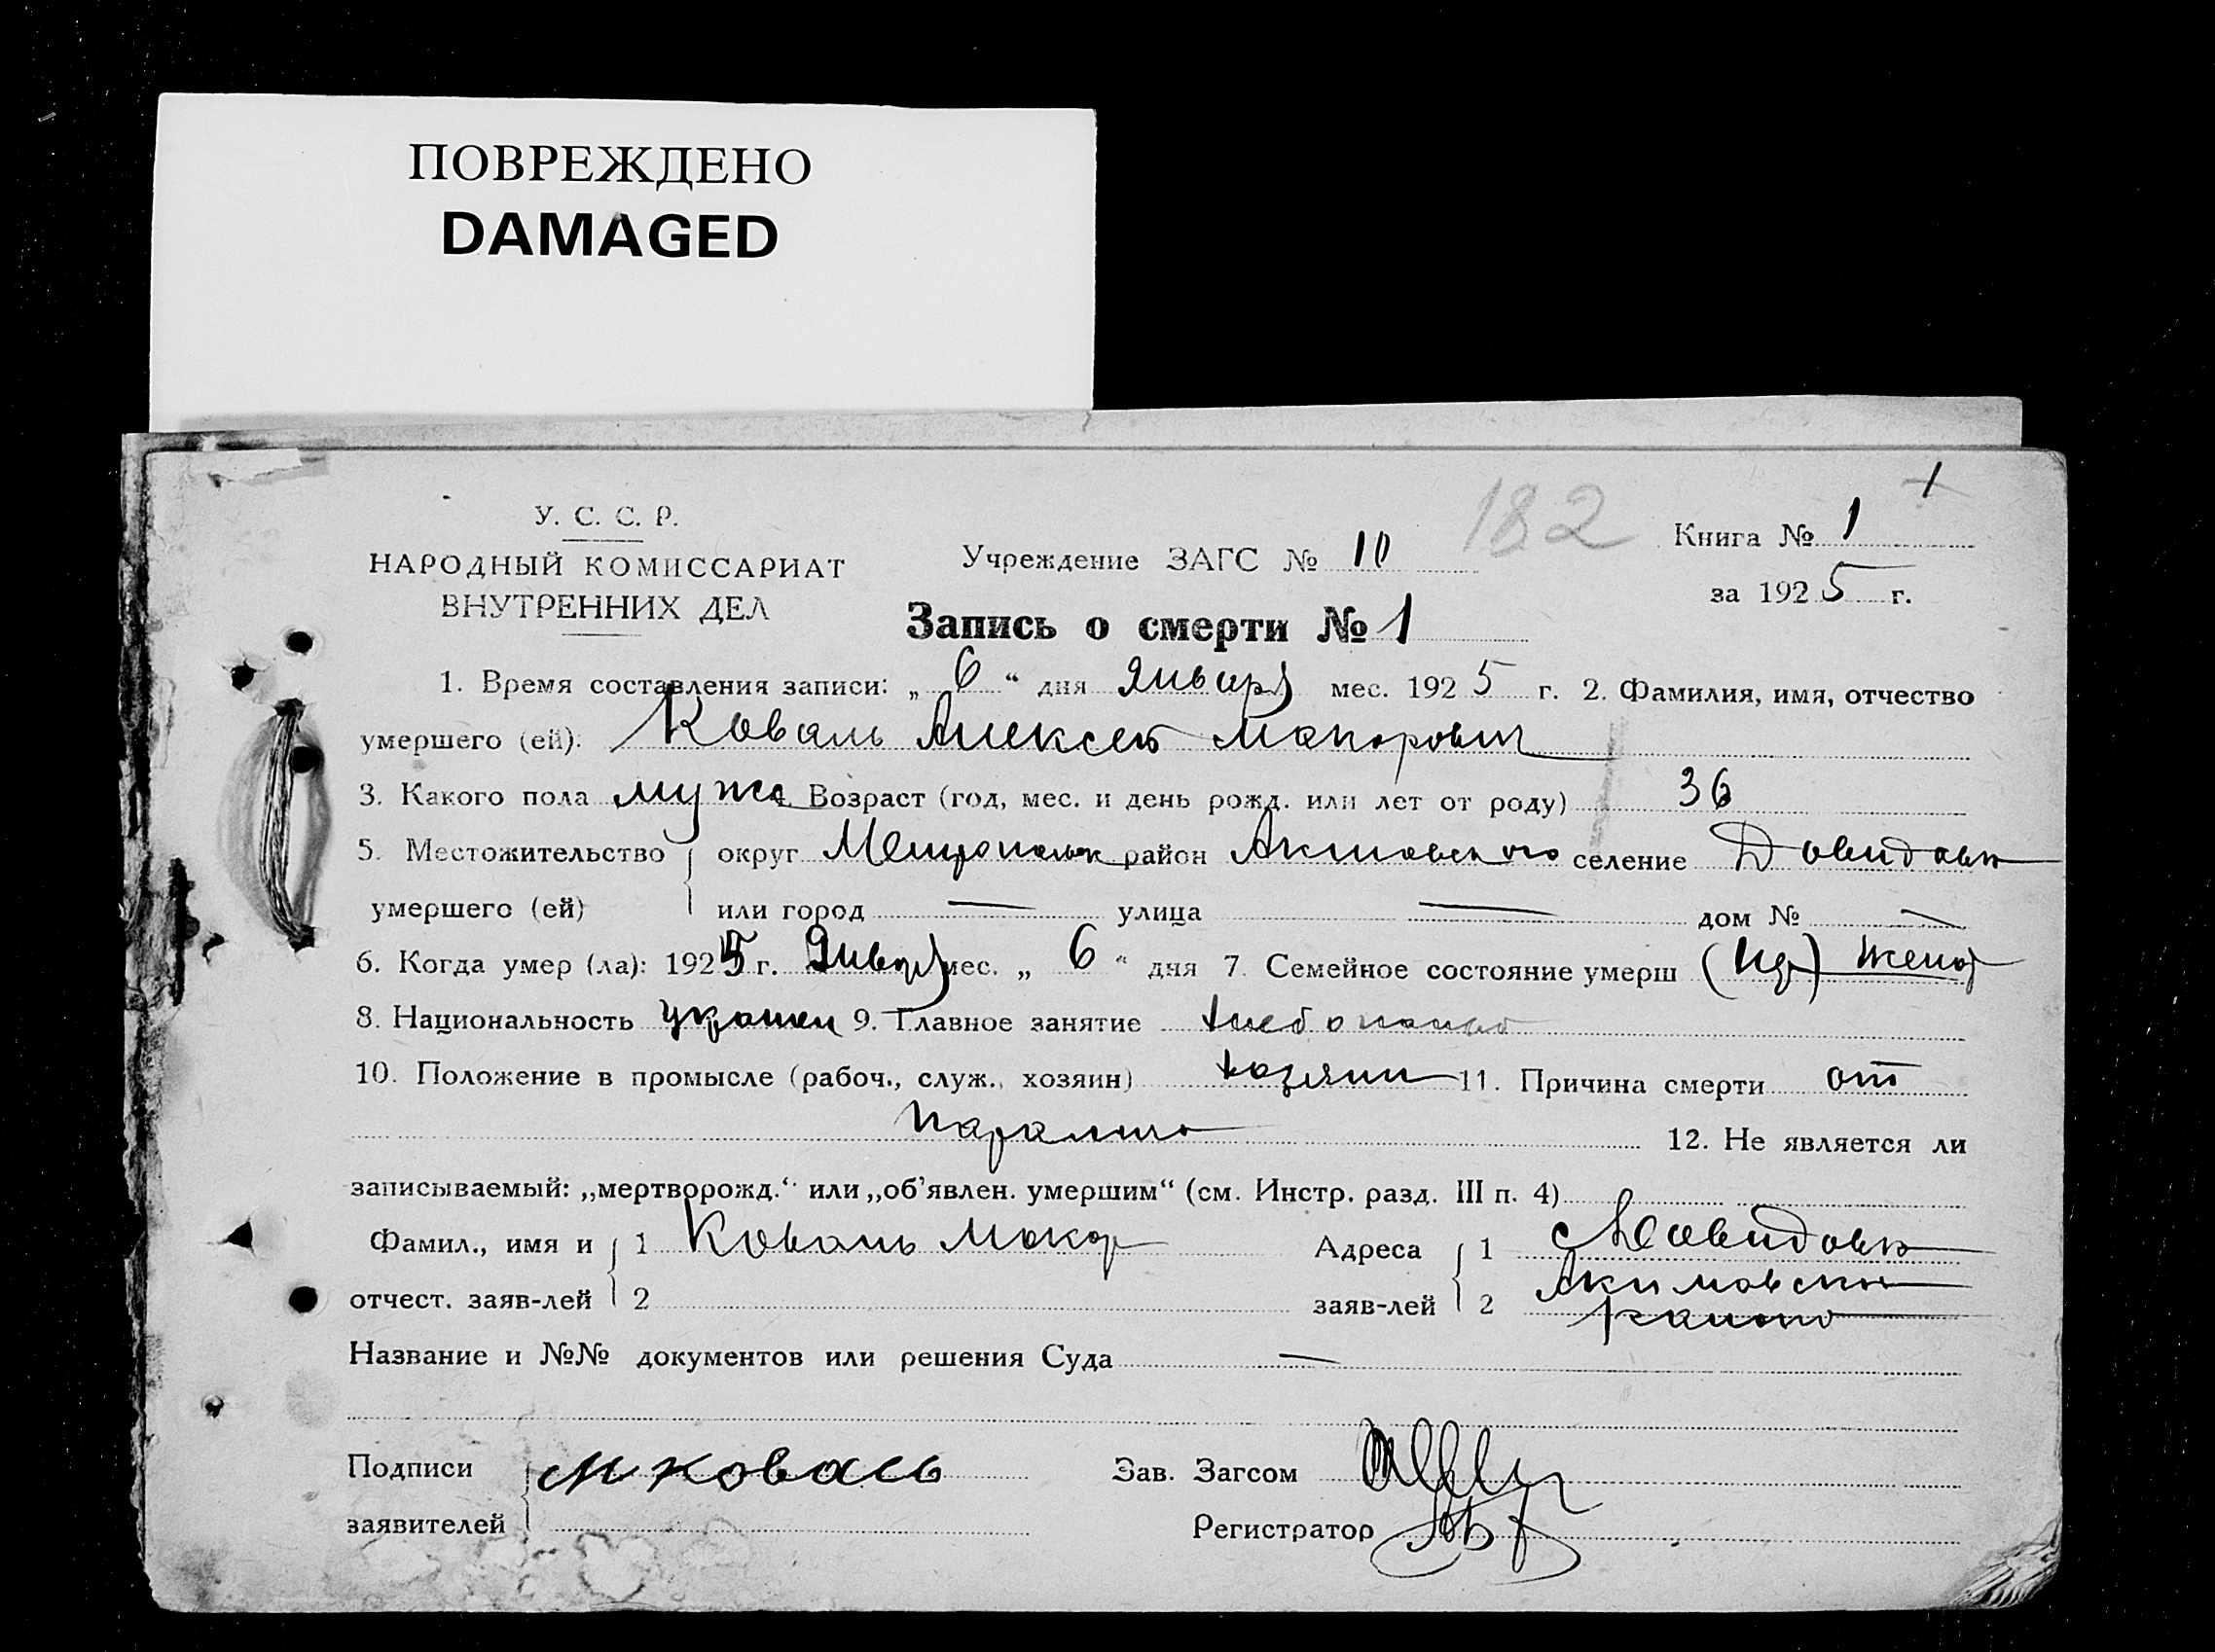 ПОВРЕЖДЕНО
DAMAGED
182
У. С. С. Р.
НАРОДНЫЙ КОМИССАРИАТ
ВНУТРЕННИХ ДЕЛ
Учреждение ЗАГС № 10
Книга № 1
за 1925 г.
Запись о смерти № 1
1. Время составления записи: „ 6 “ дня Января мес. 1925 г. 2. Фамилия, имя, отчество
умершего (ей). Коваль Алексей Макарович
3. Какого пола мужс 4. Возраст (год, мес. и день рожд. или лет от роду) 36
5. Местожительство округ Мелитопольск район Акимовского селение Довидовка
умершего (ей) или город — улица — дом № —
6. Когда умер (ла): 1925 г. Января мес. „ 6 “ дня 7. Семейное состояние умерш женат
8. Национальность украин 9. Главное занятие хлебопашест
10. Положение в промысле (рабоч., служ., хозяин) хозяин 11. Причина смерти от
паралича 12. Не является ли
записываемый: „мертворожд.“ или „об’явлен. умершим“ (см. Инстр. разд. III п. 4)
Фамил., имя и 1 Коваль Макар Адреса 1 с Довидовка
отчест. заяв-лей 2 заяв-лей 2 Акимовского
района
Название и №№ документов или решения Суда —
Подписи М Коваль Зав. Загсом
заявителей Регистратор